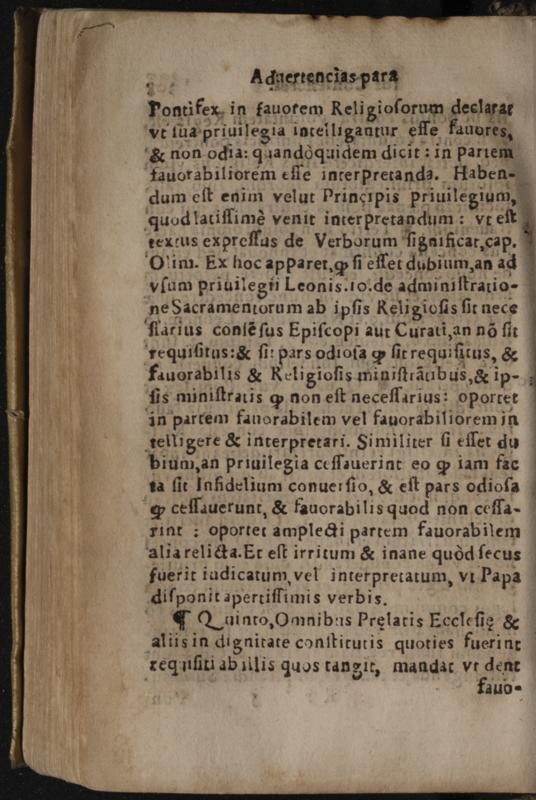 Aduertencias para
Pontifex in fauorem Religioſorum declarat
vt ſua priuilegia intelligantur eſſe fauores,
& non odia: quandòquidem dicit : in partem
fauorabiliorem eſſe interpretanda. Haben-
dum eſt enim velut Principis priuilegium,
quod latiſſimè venit interpretandum : vt eſt
textus expreſſus de Verborum ſignificat, cap.
Olim. Ex hoc apparet, ꝙ ſi eſſet dubium, an ad
vſum priuilegii Leonis.10.de adminiſtratio-
ne Sacramentorum ab ipſis Religioſis ſit nece
ſſarius conſẽſus Epiſcopi aut Curati, an nõ ſit
requiſitus: & ſit pars odioſa ꝙ ſit requiſitus, &
fauorabilis & Religioſis miniſtrãtibus, & ip-
ſis miniſtratis ꝙ non eſt neceſſarius: oportet
in partem fauorabilem vel fauorabiliorem in
telligere & interpretari. Similiter ſi eſſet du
bium, an priuilegia ceſſauerint eo ꝙ iam fac
ta ſit Infidelium conuerſio, & eſt pars odioſa
ꝙ ceſſauerunt, & fauorabilis quod non ceſſa-
rint : oportet amplecti partem fauorabilem
alia relicta. Et eſt irritum & inane quòd ſecus
fuerit iudicatum, vel interpretatum, vt Papa
diſponit apertiſſimis verbis.
¶ Quinto, Omnibus Pręlatis Eccleſię &
aliis in dignitate conſtitutis quoties fuerint
requiſiti ab illis quos tangit, mandat vt dent
fauo-